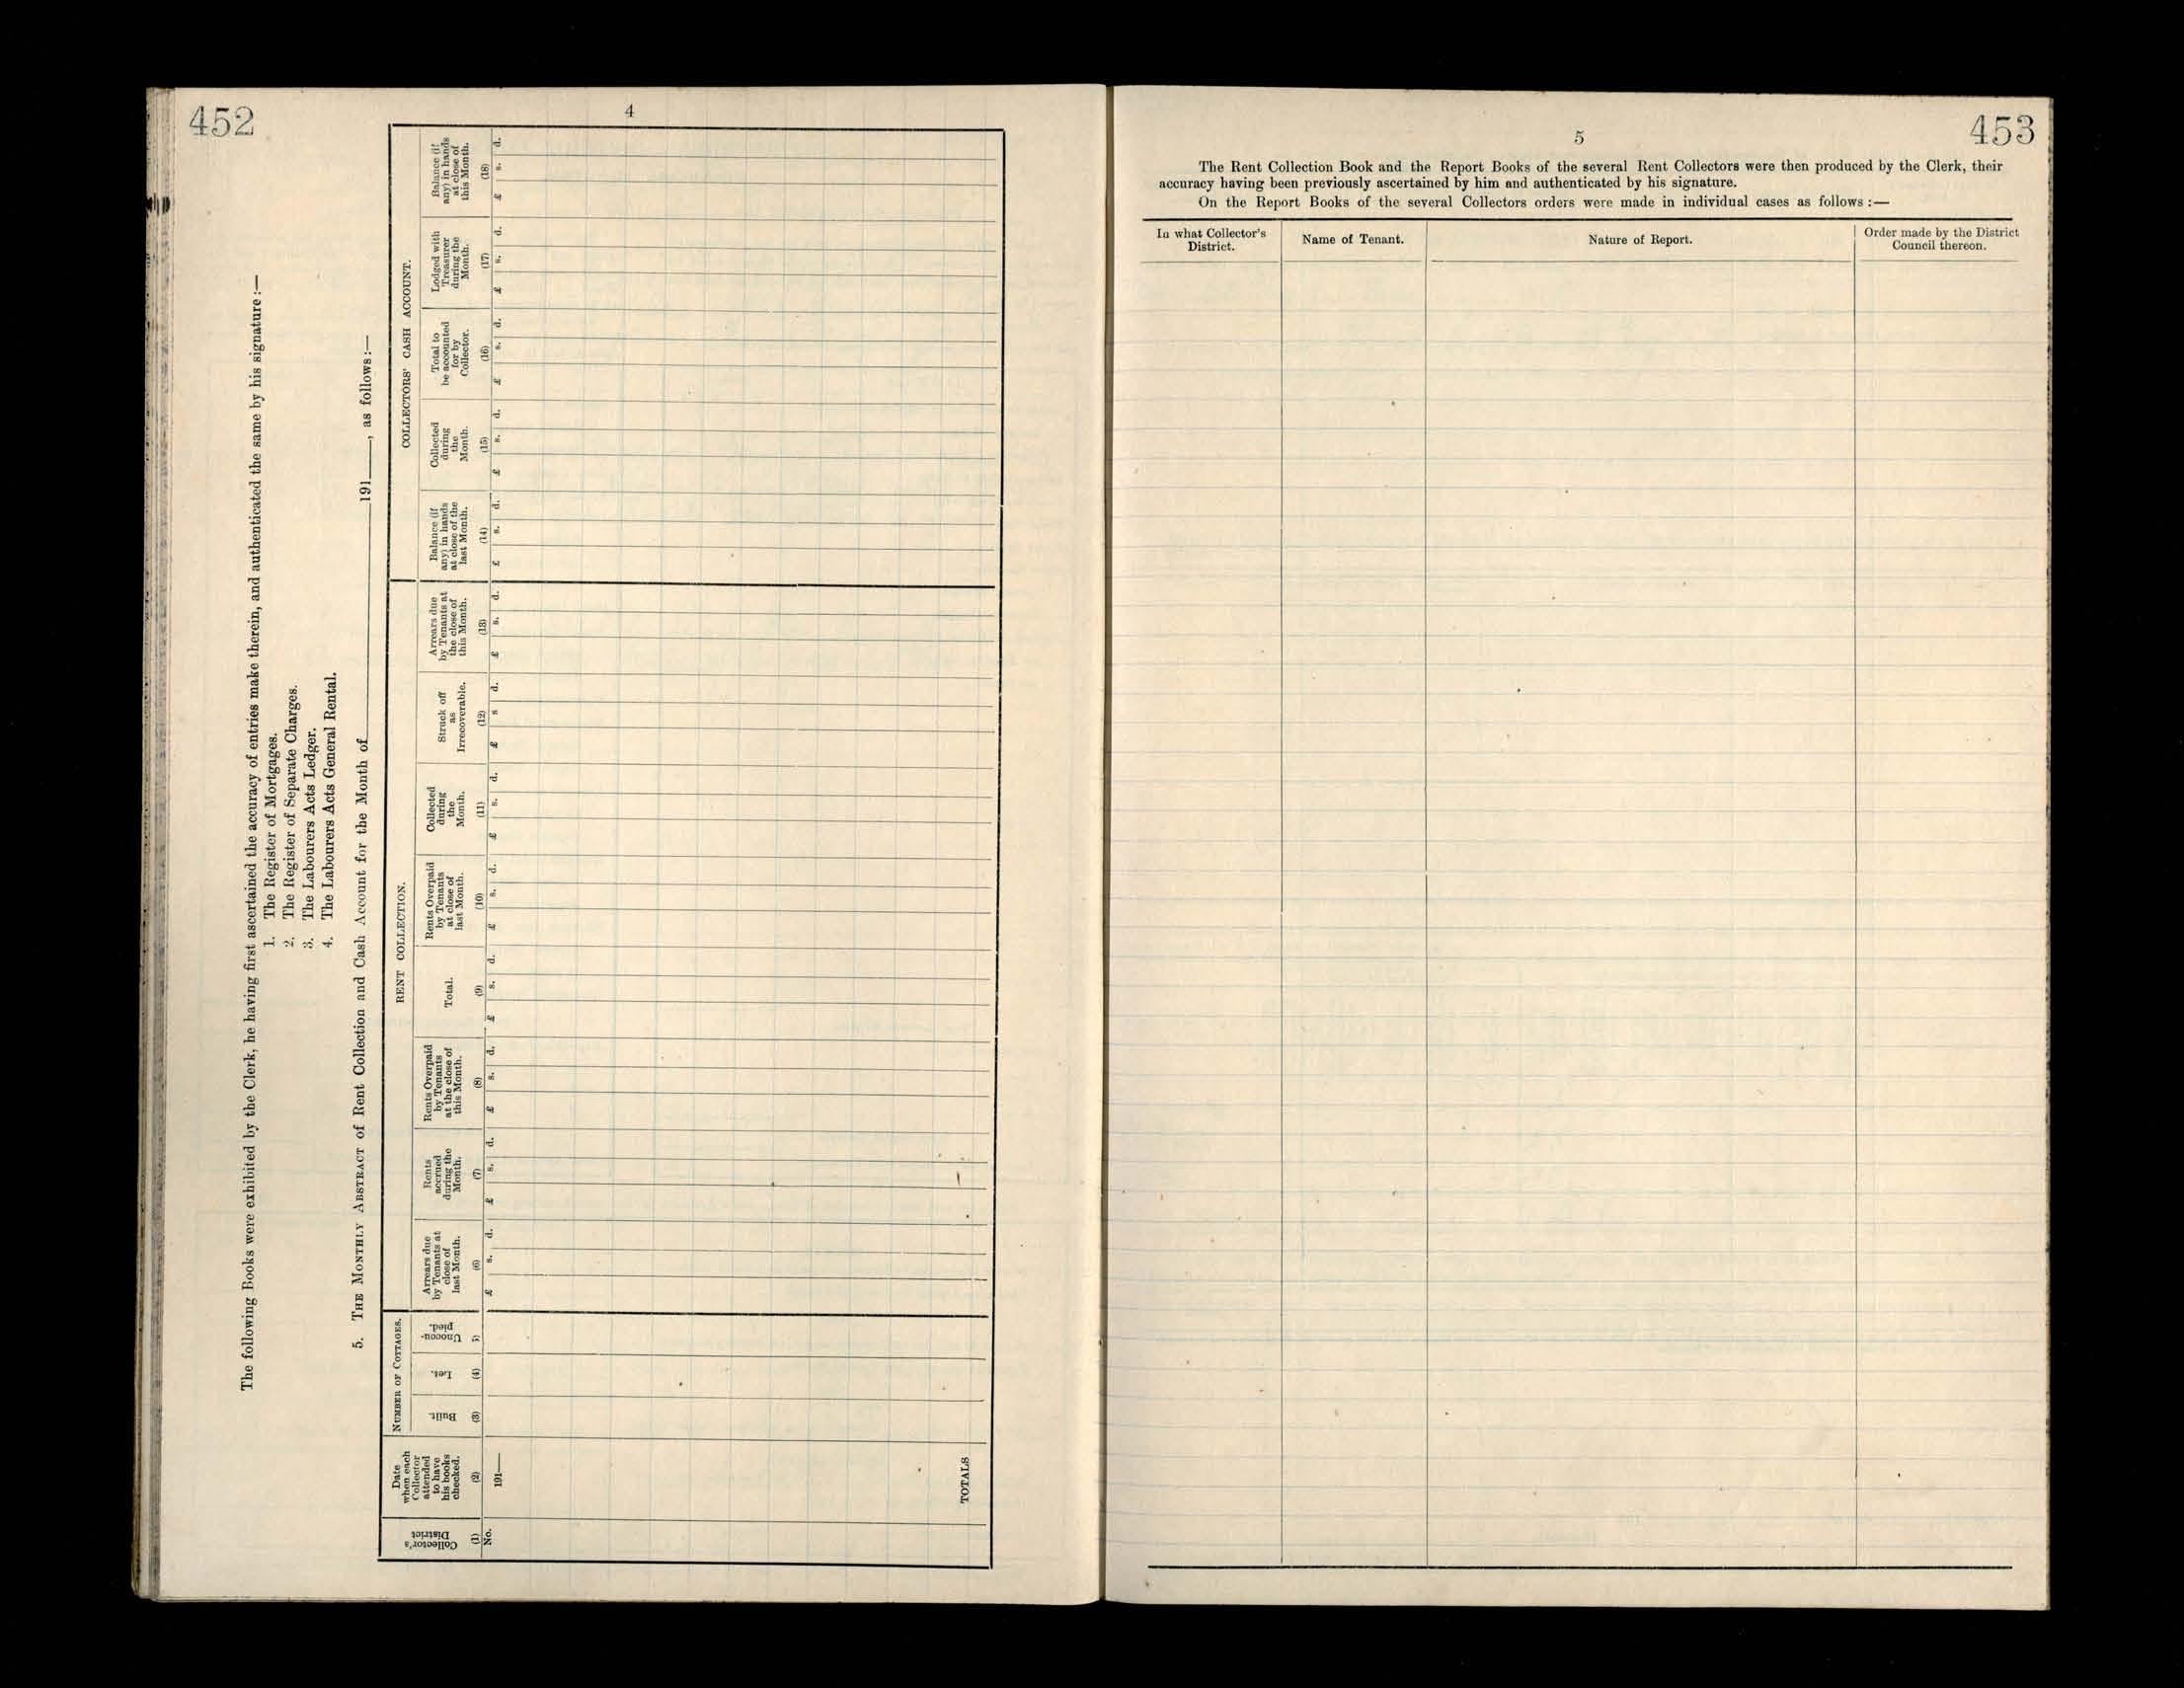 452
4
The following Books were exhibited by the Clerk, he having first ascertained the accuracy of entries make therein, and authenticated the same by his signature :—
1. The Register of Mortgages.
2. The Register of Separate Charges.
3. The Labourers Acts Ledger.
4. The Labourers Acts General Rental.
5. THE MONTHLY ABSTRACT of Rent Collection and Cash Account for the Month of 191 , as follows :—
NUMBER OF COTTAGES.
RENT COLLECTION.
COLLECTORS' CASH ACCOUNT.
Collector's
District
(1)
Date
when each
Collector
attended
to have
his books
checked.
(2)
Built.
(3)
Let.
(4)
Unoccu-
pied.
5)
Arrears due
by Tenants at
close of
last Month.
(6)
Rents
accrued
during the
Month.
(7)
Rents Overpaid
by Tenants
at the close of
this Month.
(8)
Total.
(9)
Rents Overpaid
by Tenants
at close of
last Month.
(10)
Collected
during
the
Month.
(11)
Struck off
as
Irrecoverable.
(12)
Arrears due
by Tenants at
the close of
this Month.
(13)
Balance (if
any) in hands
at close of the
last Month.
(14)
Collected
during
the
Month.
(15)
Total to
be accounted
for by
Collector.
(16)
Lodged with
Treasurer
during the
Month.
(17)
Balance (if
any) in hands
at close of
this Month.
(18)
No.
191—
£ s. d. £ s. d. £ s. d. £ s. d. £ s. d. £ s. d. £ s d. £ s. d. £ s. d. £ s. d. £ s. d. £ s. d. £ s. d.
TOTALS
453
5
The Rent Collection Book and the Report Books of the several Rent Collectors were then produced by the Clerk, their
accuracy having been previously ascertained by him and authenticated by his signature.
On the Report Books of the several Collectors orders were made in individual cases as follows :—
In what Collector's
District.
Name of Tenant.
Nature of Report.
Order made by the District
Council thereon.